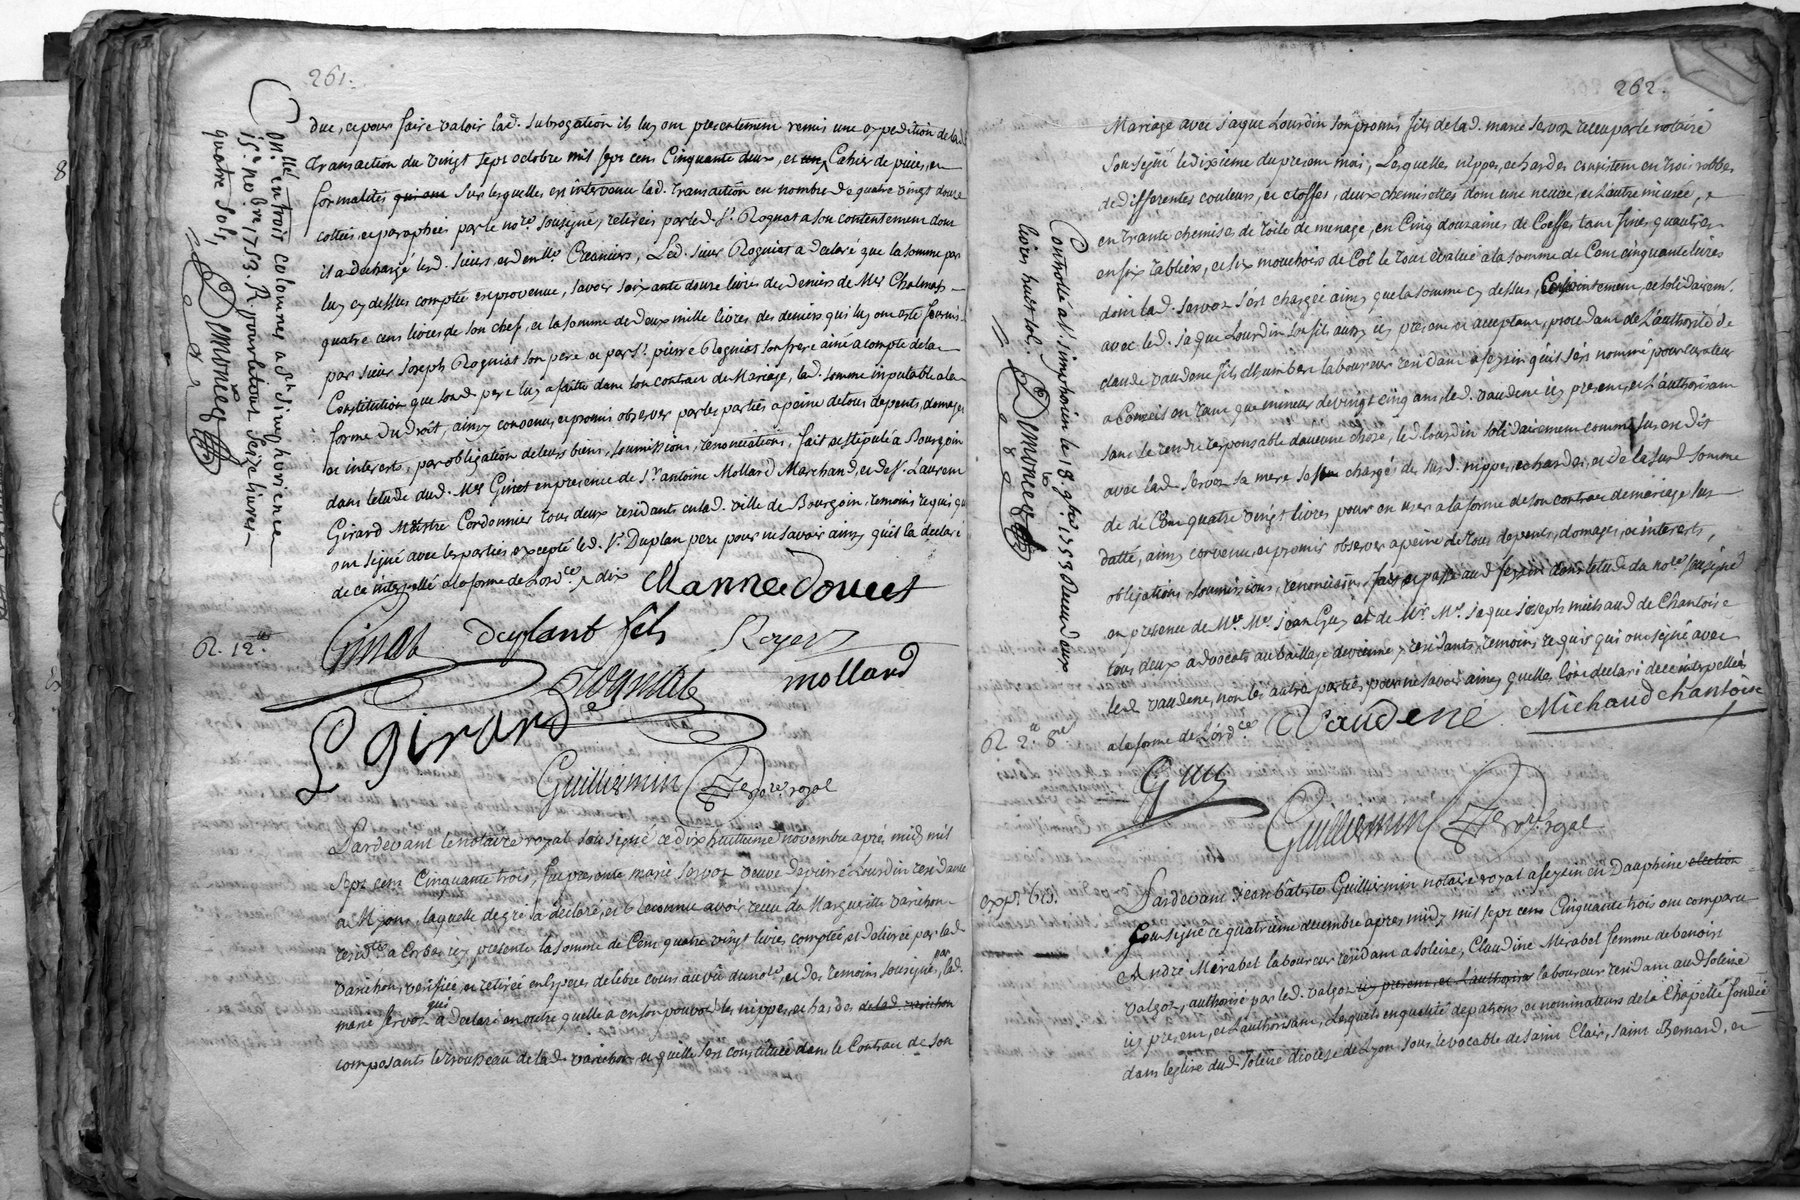 261.
due, et pour faire valoir lad. subrogation ils luy ont presentement remis une expedition de lad.
transaction du vingt sept octobre mil sept cent cinquante deux, et un Cahier de pieces, et
formalités qui ont sur lesquelles est intervenu lad. transaction en nombre de quatre vingt douze
cottées, et paraphées par le nore. sousigné, retirées par led. Sr. Rogniat a son contentement dont
il a dechargé lesd. sieurs, et demlle Creaniers, Led. sieur Rogniat a declaré que la somme par
luy cy dessus comptée est provenue, savoir soixante douze livres des deniers de Mes Chalmas
quatre cent livres de son chef, et la somme de deux mille livres des deniers qui luy ont esté fournis
par sieur Joseph Rogniat son pere et par Sr. pierre Rogniat son frere ainé a compte de la
Constitution que sond. pere luy a faitte dans son contract de Mariage, lad. somme inputable a la
forme du Droit, ainsy convenu, et promis observer par les parties a peine de tous depents, domages
et interests, par obligation de leurs biens, soumissions, renonciations, fait et stipulé a Bourgoin
dans letude dud. Me Ginet en presence de Sr. antoine Mollard Marchand, et de Sr. Laurent
Girard Maistre Cordonnier tous deux residants en lad. ville de Bourgoin temoins requis qui
ont signé avec les parties excepté led. Sr. Duplan pere pour ne savoir ainsy quil la declaré
de ce interpellé a la forme de Lordce. dix
Marnnedoucet
Ginet duplant fils Royer
Rogniat mollard
L girard
R. 12s.
Guilliermin Nore. royal
Pardevant le notaire royal sousigné ce dix huitieme novembre aprés midy mil
sept cent cinquante trois, fut presente marie servoz veuve de pierre Lourdin residante
a Myons, laquelle de gré a declaré, et reconnu avoir receu de Marguerite varichon
residte a Corbas icy presente la somme de Cent quatre vingt livres comptée, et delivrée par lad.
varichon, verifiée, et retirée en Especes de libre cours au vû du nore, et des temoins sousignés par lad.
marie servoz qui a declaré en outre quelle a en son pouvoir les nippes, et hardes de lad. varichon
composants le trousseau de lad. varichon et quelle sest constituée dans le Contract de son
onllé en trois colonnes a St. Simphorien ce
15e. nobre. 1753. R. pour le tout seize livres
quatre sols,
Demoncey
262.
Mariage avec Jaque Lourdin son promis fils de lad. marie servoz receu par le notaire
sousigné le dixieme du present mois, Lesquelles nippes, et hardes consistent en trois robbes
de differentes couleurs, et etoffes, deux chemisottes dont une neuve, et Lautre miusée,
en trante chemises de toile de menage, en Cinq douzaines de Coeffes tant fines quautres
en six tabliers, et six mouchoirs de Col le tout évalué a la somme de Cent cinquante livres
dont lad. servoz sest chargée ainsy que la somme cy dessus, Conjointement, et solidairemt.
avec led. Jaque Lourdin son fils aussy icy present et acceptant, procedant de L'authorité de
claude vaudene fils d'humbert laboureur residant a feyzin quil sest nommé pour curateur
a Conseils en tant que mineur de vingt cinq ans, led. vaudene icy present, et L'authorisant
sans se rendre responsable daucune chose, led. Lourdin solidairement comme sus en dit
avec lad. Servoz sa mere se sont chargés des susd. nippes, et hardes, et de la susd. somme
de de Cent quatre vingt livres pour en user a la forme de son contract de mariage sus
datté, ainsy convenu, et promis observer a peine de tous depents, domages, et interests,
obligations soumissions, renonciaôn, fait et passé aud. feyzin dans letude du nore. sousigné
en presence de Mre. Me. Joan Guy et de Mre. Me. Jaque Joseph michaud de Chantoise
tous deux advocats au baillage de vienne y residants, temoins requis qui ont signé avec
led. vaudene, non les autres parties pour ne savoir ainsy quelles lont declaré de ce interpellés
a la forme de Lordce.
Vaudené Michaud chantoise
R. 2s. 8d.
Guy
Guilliermin Nore. royal
Controllé a St. simphorien le 18. 9bre. 1753 Receu deux
livres huit sols.
Demoncey
expé. 613.
Pardevant Jean bâtiste Guilliermin notaire royal a feyzin en Dauphiné election
sousigné ce quatrieme decembre aprés midy mil sept cent Cinquante trois ont comparu
André Mirabel laboureur residant a soleize, Claudine Mirabel femme de benoist
valgoz, authorisé par led. valgoz icy present, et L'authorise laboureur residant aud. soleize
icy present, et L'authorisant, Lesquels en qualité de patrons, et nominateurs de la Chapelle fondée
dans leglise dud. soleize diocese de Lyon sous le vocable de saint Clair, saint Bernard, et